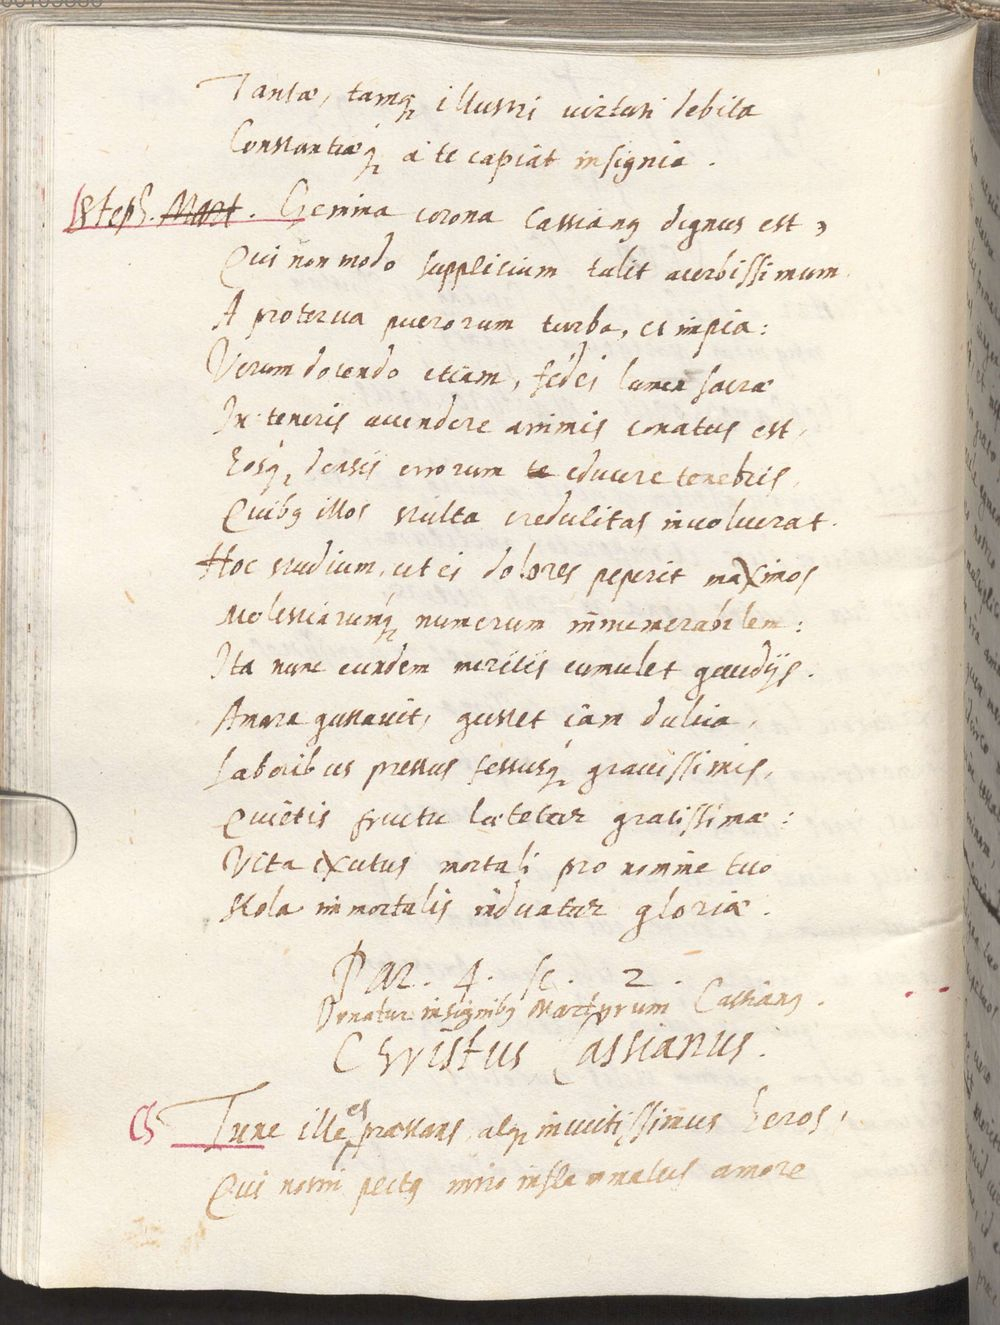 Tantæ, tamq₃ illustri virtuti debita
Constantiæq₃ a te capiat insignia.
Steph. Mart. Gemina corona Cassianꝰ dignus est,
Qui non modo supplicium tulit acerbissimum
A proterva puerorum turba, et impia:
Verum docendo etiam, fidei lumen sacræ
In teneris accendere animis conatus est,
Eosq₃ densis errorum te educere tenebris,
Quibꝰ illos stulta credulitas involuerat.
Hoc studium, ut ei dolores peperit maximos
Molestiarumq₃ numerum innumerabilem:
Ita nunc eundem meritis cumulet gaudijs.
Amara gustavit, gustet iam dulcia,
Laboribus pressus fessusq₃ gravissimis,
Quietis fructu lætetur gratissimæ:
Vita exutus mortali pro nomine tuo
Stola immortalis induatur gloriæ.
Par. 4. sc. 2.
Ornatur insignibꝰ Martyrum Cassianꝰ.
Christus Cassianus.
CS Tune ille es præstans, atq₃ invictissimus heros,
Qui nostri pectꝰ miro inflammatus amore